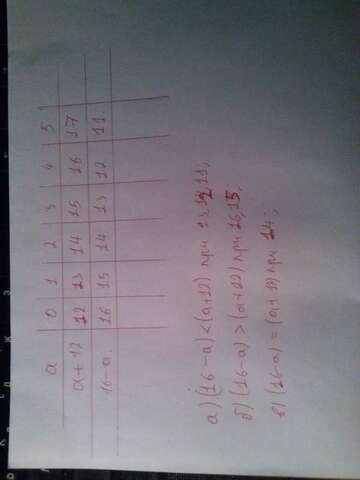 a 0 1 2 3 4 5
a+12 12 13 14 15 16 17
16-a. 16 15 14 13 12 11.
а) (16-a) < (a+12) при 13,12,11;
б) (16-a) > (a+12) при 16,15;
в) (16-a) = (a+12) при 14;